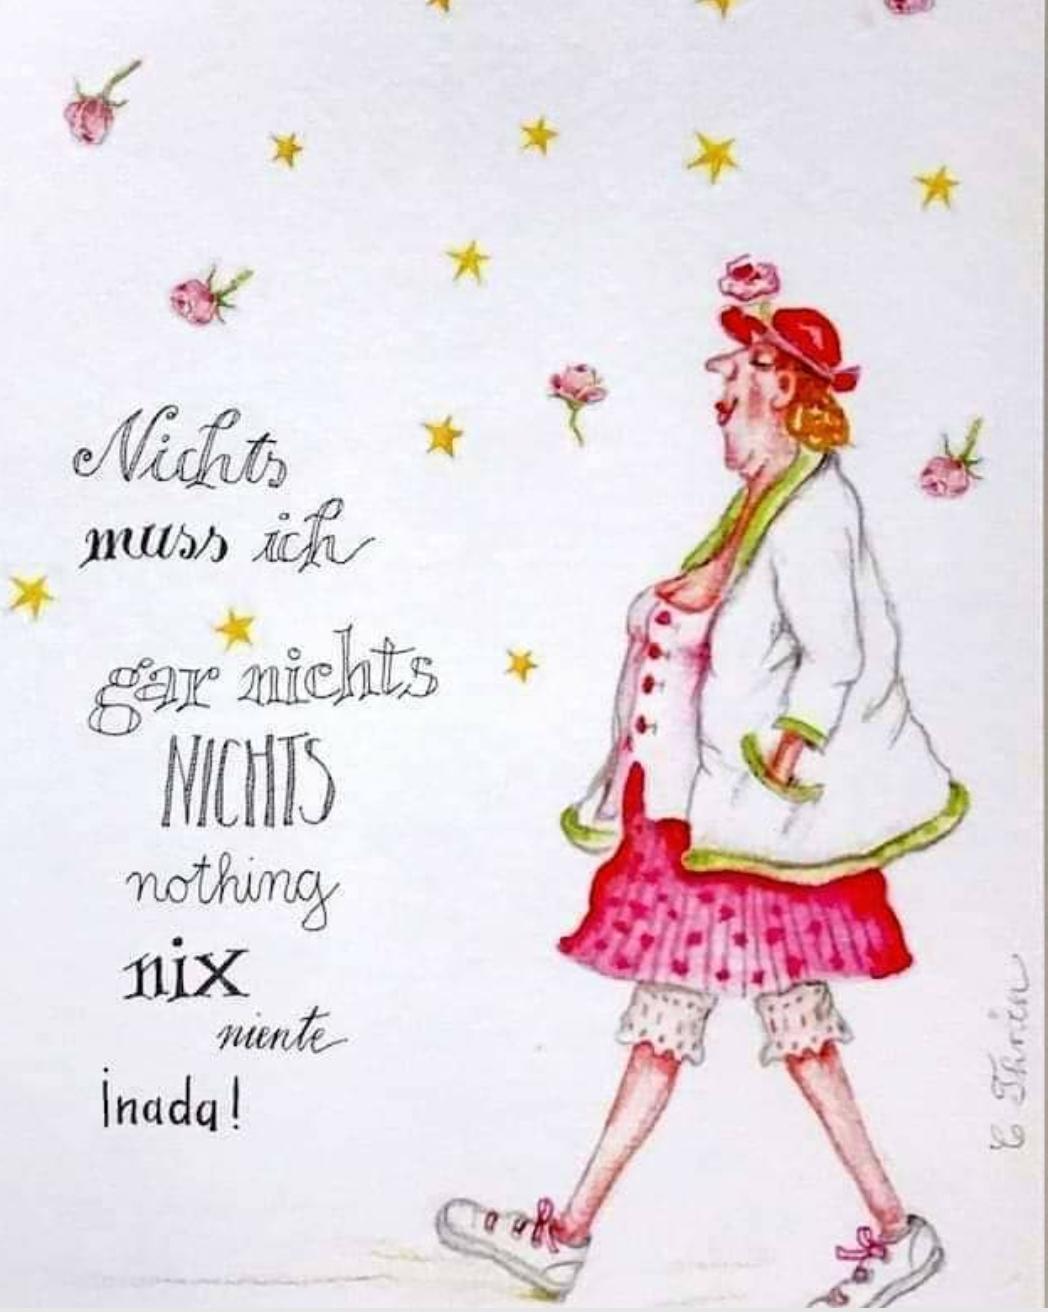 Nichts
muss ich
gar nichts
NICHTS
nothing
nix
niente
¡nada!
C Thrän